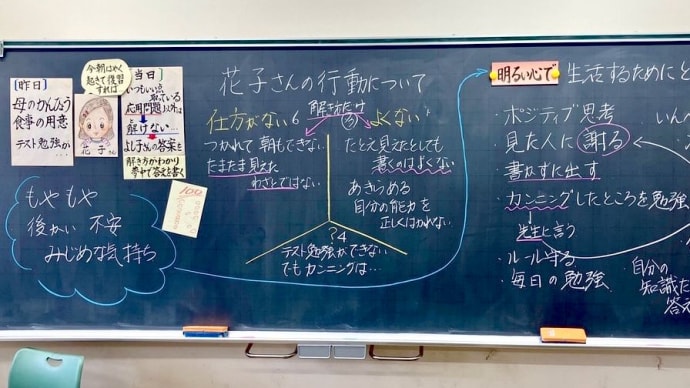 [昨日]
母のかんびょう
食事の用意
テスト勉強が…
今朝はやく
起きて復習
すれば
花子さん
[当日]
いつもいい点
応用問題以外は
解けない…
よし子さんの答案を
解き方がわかり
夢中で答えを書く
100
もやもや
後かい 不安
みじめな気持ち
花子さんの行動について
仕方がない 6
解き方だけ
よくない
つかれて 朝もできない
たまたま見えた
わざとではない
たとえ見えたとしても
書くのはよくない
あきらめる
自分の能力を
正しくはかれない
?4
テスト勉強ができない
でもカンニングは…
明るい心で 生活するためにと
・ポジティブ思考
・見た人に謝る
・書かずに出す
・カンニングしたところを勉強
先生と言う
・ルールする
・毎日の勉強
自分の
知識だ
答え